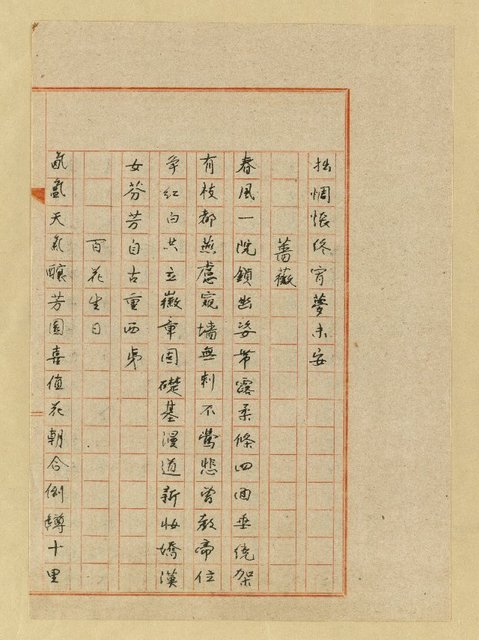 拙惆悵終宵夢未安
薔薇
春風一院鎖幽姿帶露柔條四面垂繞架
有枝都燕慮窺墻無刺不鶯悲曾教帝位
爭紅白共立徽章固礎基漫道新妝嬌漢
女芬芳自古重西夷
百花生日
氤氳天氣釀芳園喜值花朝合倒罇十里